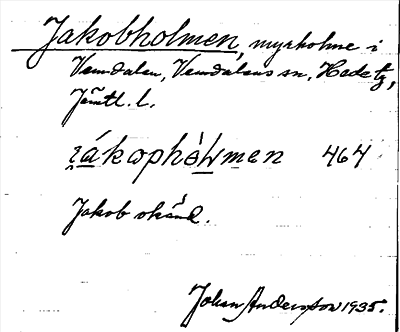 Jakobholmen, myrholme i
Vemdalen, Vemdalens sn, Hede tg,
Jämtl. l.
i̯ákophòl̀men 464
Jakob okänd.
Johan Andersson 1935.